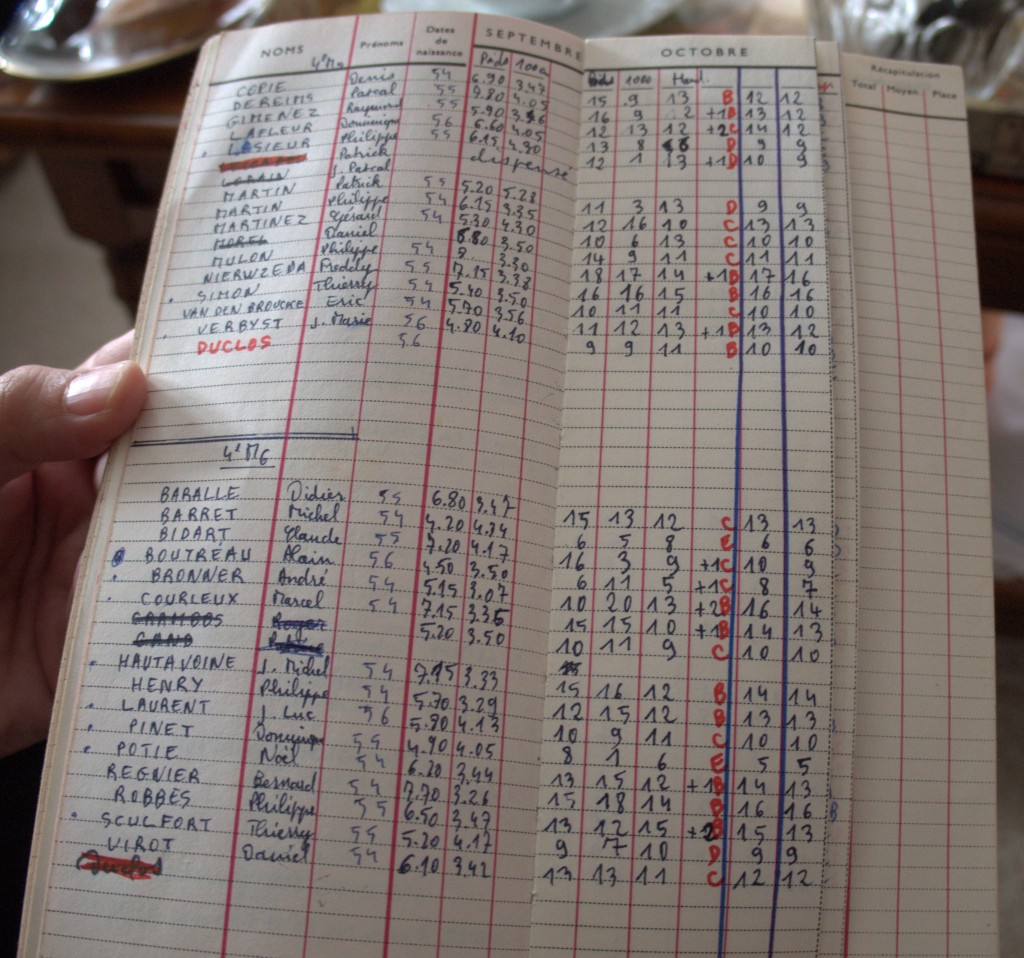 NOMS Prénoms Dates de naissance SEPTEMBRE OCTOBRE Récapitulation
Poids 1000 1000 Haut. Total Moyen Place
COPIE Denis 54 6.90 3.47 15 9 13 B 12 12
DEREIMS Pascal 55 7.80 4.05 16 9 2 +1B 13 12
GIMENEZ Raymond 55 5.90 3.56 12 13 12 +2C 14 12
LAFLEUR Dominique 56 6.60 4.05 13 8 8 D 9 9
LESIEUR Philippe 55 6.15 4.30 12 1 13 +1D 10 9
Patrick dispensé
LORAIN J. Pascal
MARTIN Patrick 55 5.20 5.28 11 3 13 D 9 9
MARTIN Philippe 54 6.15 3.35 12 16 10 C 13 13
MARTINEZ Gérard 54 5.30 4.30 10 6 13 C 10 10
MOREL Daniel 6.80 3.50 14 9 11 C 11 11
MULON Philippe 54 8. 3.30 18 17 14 +1B 17 16
NIERWZEDA Freddy 55 7.15 3.38 16 16 15 B 16 16
SIMON Thierry 54 5.40 3.50 10 11 11 C 10 10
VAN DEN BROUCKE Eric 54 5.70 3.56 11 12 13 +1B 13 12
VERBYST J. Marie 56 4.80 4.10 9 9 11 B 10 10
DUCLOS 56
4°M6
BARALLE Didier 55 6.80 3.47 15 13 12 C 13 13
BARRET Michel 54 4.20 4.34 6 5 8 E 6 6
BIDART Claude 55 7.20 4.17 16 3 9 +1C 10 9
BOUTREAU Alain 56 4.50 3.50 6 11 5 +1C 8 7
BRONNER André 54 5.15 3.07 10 20 13 +2B 16 14
COURLEUX Marcel 54 7.15 3.36 15 15 10 +1B 14 13
Roger 5.20 3.50 10 11 9 C 10 10
GAND 15
HAUTAVOINE J. Michel 54 7.15 3.33 15 16 12 B 14 14
HENRY Philippe 54 5.70 3.29 12 15 12 B 13 13
LAURENT J. Luc 56 5.80 4.13 10 9 11 C 10 10
PINET Dominique 55 4.90 4.05 8 1 6 E 5 5
POTIE Noël 54 6.20 3.44 13 15 12 +1B 14 13
REGNIER Bernard 54 7.70 3.26 15 18 14 B 16 16
ROBBES Philippe 55 6.50 3.47 13 12 15 +2B 15 13
SCULFORT Thierry 55 5.20 4.17 9 7 10 D 9 9
VIROT Daniel 54 6.10 3.42 13 13 11 C 12 12
Duclos